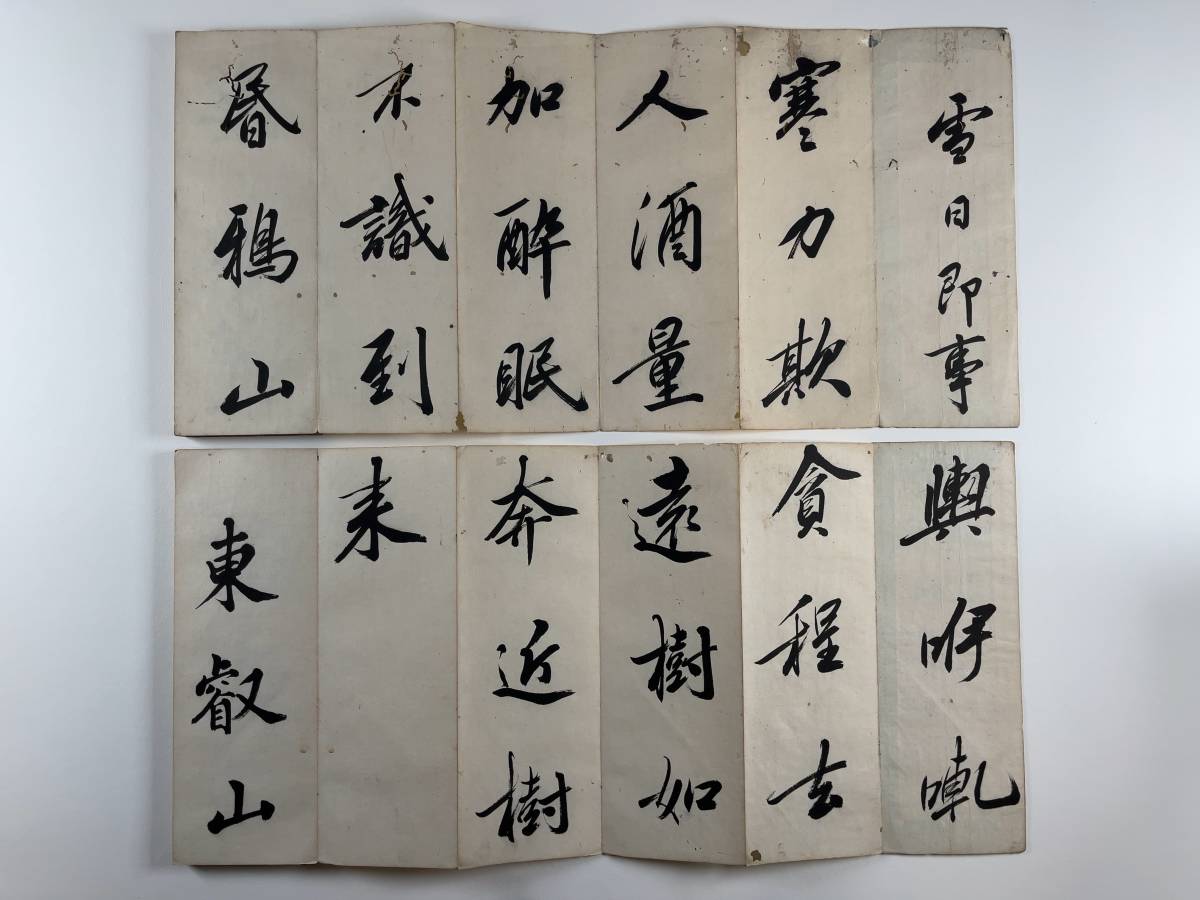 雪日即事
寒力欺
人酒量
加醉眠
不識到
昏鴉山
輿咿喇
貪程去
遠樹如
奔近樹
来
東叡山